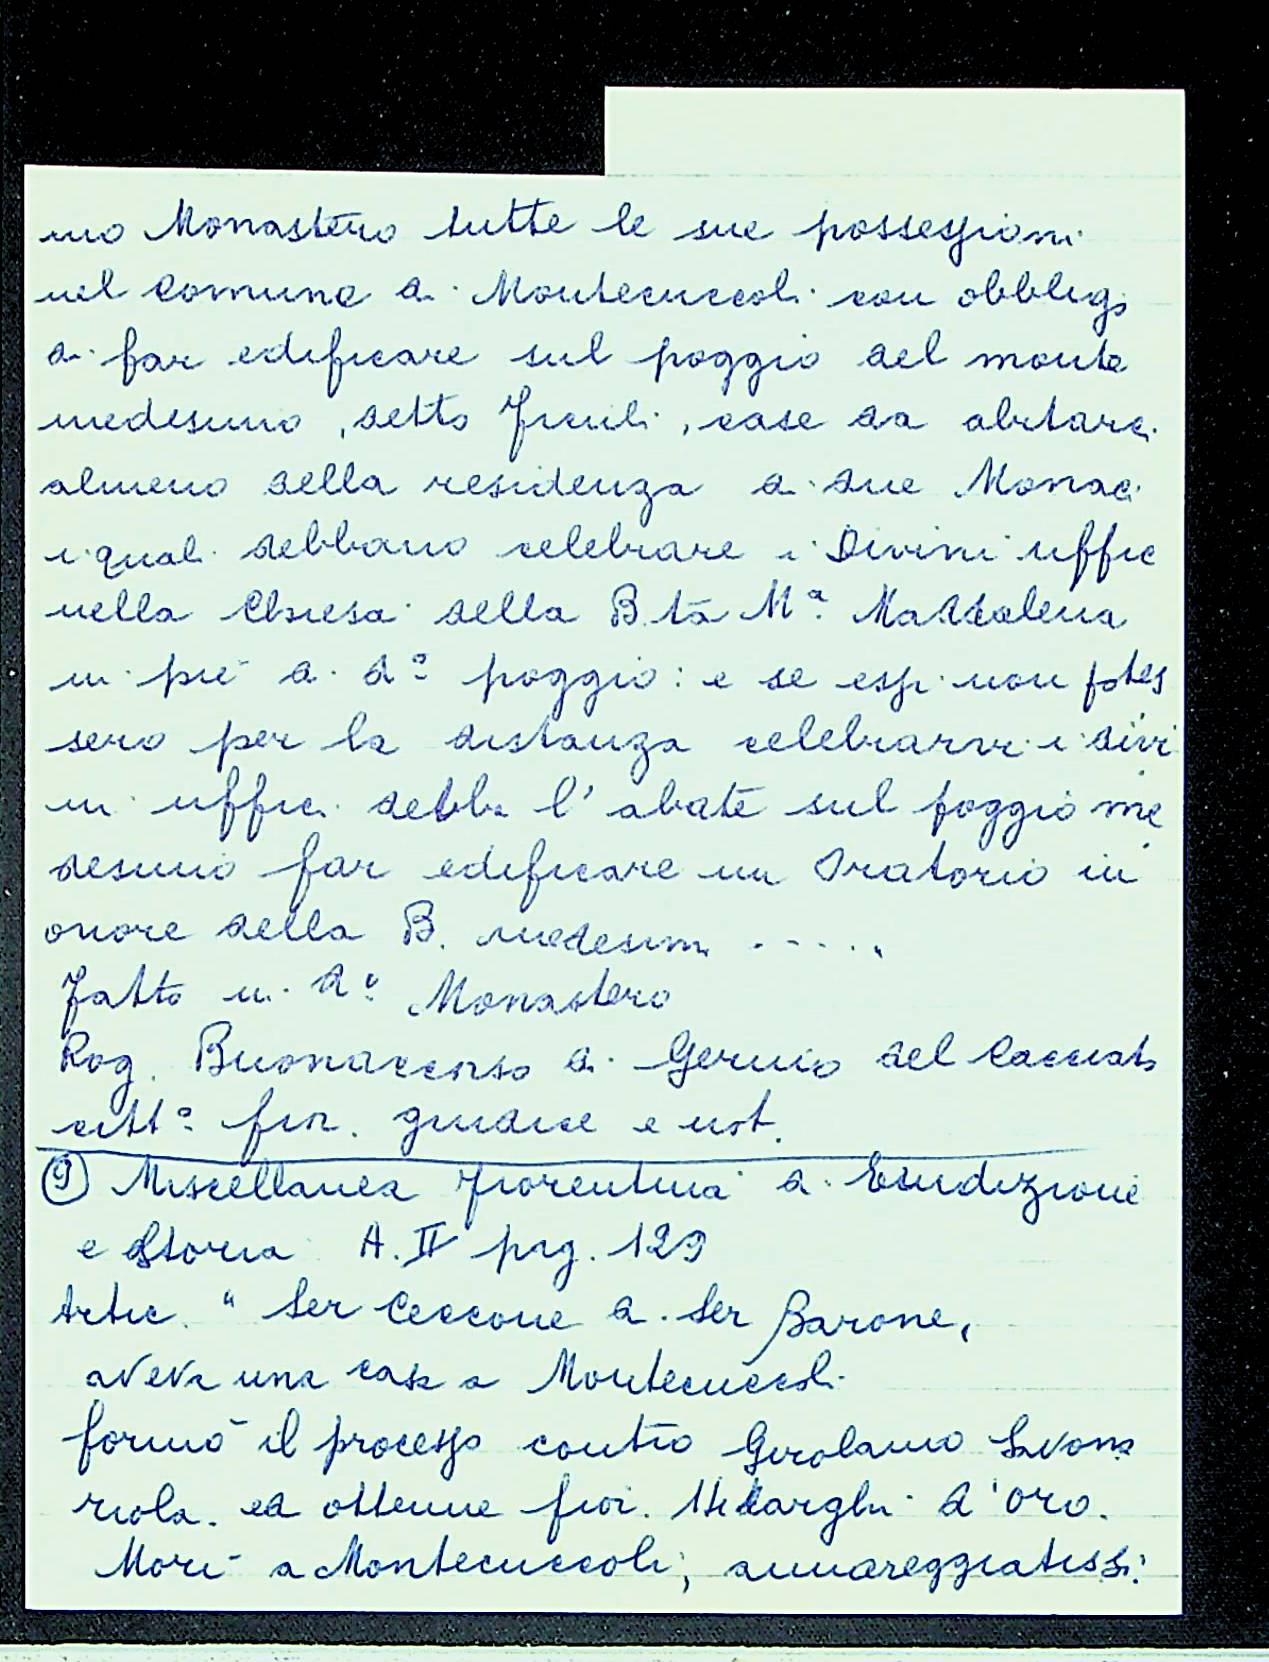 mo Monastero tutte le sue possessioni
nel Comune di Montecuccoli con obbligo
di far edificare sul poggio del monte
medesimo, detto Ficuli, case da abitarci
almeno della residenza di due Monaci
i quali debbano celebrare i Divini uffic
nella Chiesa della B.ta Mª. Maddalena
in piè di dº poggio: e se essi non potes
sero per la distanza celebrarvi i divi
ni uffici debba l'abate sul poggio me
desimo far edificare un Oratorio in
onore della B. medesim .....
Fatto in dº Monastero
Rog. Buonaccorso di Gerino del Cacciato
cittº fior. giudice e not.
9) Miscellanea fiorentina di Erudizione
e Storia A. II pag. 129
Artic. " Ser Ceccone di Ser Barone,
aveva una casa a Montecuccoli
formò il processo contro Girolamo Savona
rola. ed ottenne fior. larghi d'oro.
Morì a Montecuccoli, amareggiatissi: